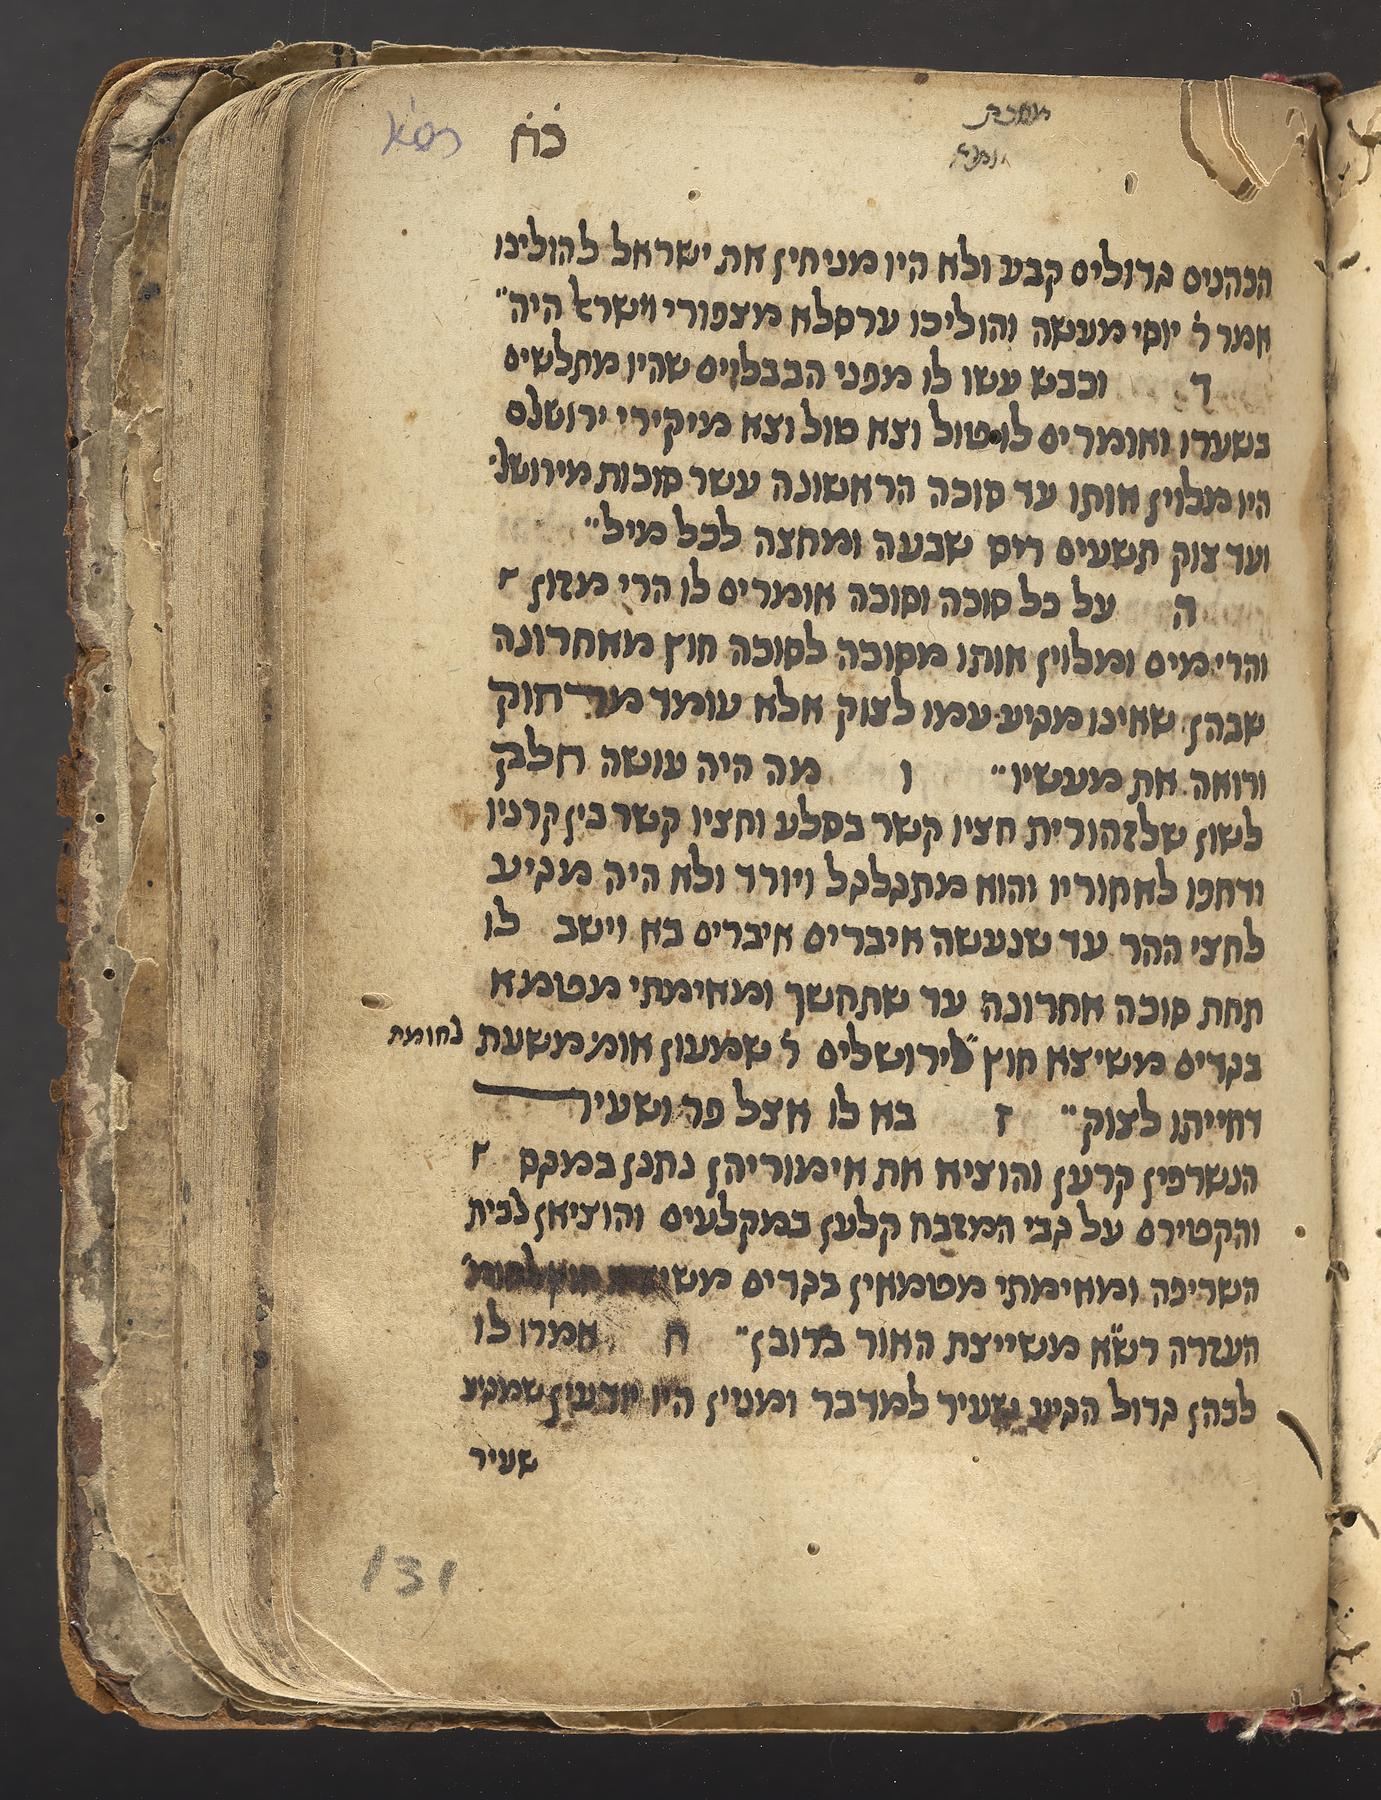 מסכת
יומא
כ̇ח̇
רס״א
הכהנים גדולים קבע ולא היו מניחין את ישראל להוליכו
אמר ר׳ יוסי מעשה והוליכו ערסלא מצפורי וישראל היה״
ד וכבש עשו לו מפני הבבלויים שהיו מתלשים
בשערו ואומרים לו טול וצא טול וצא מיקירי ירושלם
היו מלוין אותו עד סוכה הראשונה עשר סוכות מירושל׳
ועד צוק תשעים ריס שבעה ומחצה לכל מיל״
ה על כל סוכה וסוכה אומרים לו הרי מזון
והרי מים ומלוין אותו מסוכה לסוכה חוץ מאחרונה
שבהן שאינו מגיע עמו לצוק אלא עומד מרחוק
ורואה את מעשיו״ ו מה היה עושה חלק
לשון שלזהורית חציו קשר בסלע וחציו קשר בין קרניו
ודחפו לאחוריו והוא מתגלגל ויורד ולא היה מגיע
לחצי ההר עד שנעשה איברים איברים בא וישב לו
תחת סוכה אחרונה עד שתחשך ומאימתי מטמא
בגדים משיצא חוץ לירושלים ר׳ שמעון אומ׳ משעת
לחומת
דחייתו לצוק״ ז בא לו אצל פר ושעיר
הנשרפין קרען והוציא את אימוריהן נתנן במגס
והקטירם על גבי המזבח קלען במקלעים והוציאן לבית
השריפה ומאימתי מטמאין בגדים חוץ לחומת
העזרה רש״א משייצת האור ברובן״ ח אמרו לו
לכהן גדול הגיע שעיר למדבר ומניין היו יודעין שמגיע
שעיר
131